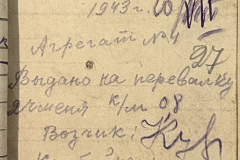 1943 г. 10/VIII
Агрегат № 4
27
Выдано на перевалку
Ячменя к/м 08
Возчик: